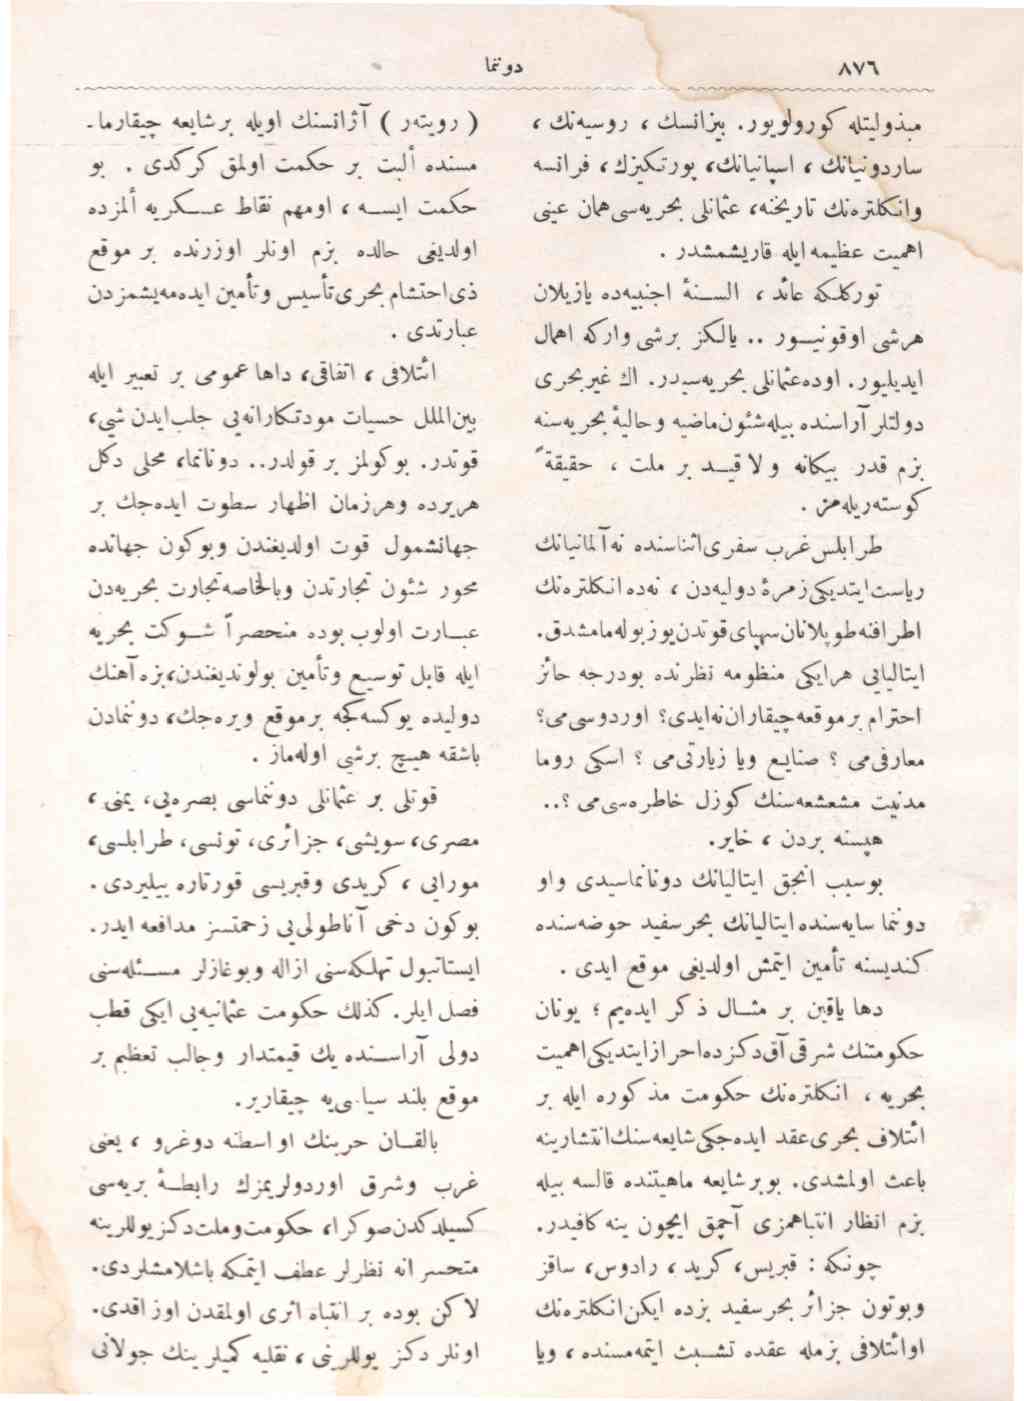 ٨٧٦
دوننما
مبذولیتله کورولویور. بیزانسك ، روسیه‌نك ،
ساردونیانك ، اسپانیانك، پورتکیزك ، فرانسه
وانکلتره‌نك تاریخنه، عثمانلی بحریه‌سی همان عینی
اهمیت عظیمه ایله قاریشمشدر .
تورکلکه عائد ، السنهٔ اجنبیه‌ده یازیلان
هرشی اوقونیور .. یالکز برشی وارکه اهمال
ایدیلیور. اوده عثمانلی بحریه‌سیدر. اك غیربحری
دولتلر آراسنده بیله شئون ماضیه وحالیهٔ بحریه‌سنه
بزم قدر بیکانه و لاقید بر ملت ، حقیقةً
کوستره‌یله‌مز .
طرابلس غرب سفری اثناسنده نه آلمانیانك
ریاست ایتدیکی زمرهٔ دولیه‌دن ، نه‌ده انکلتره‌نك
اطرافنه طوپلانان سهپای قوتدن یوز بوله‌مامشدق.
ایتالیایی هرایکی منظومه نظرنده بودرجه حائز
احترام بر موقعه چیقاران نه ایدی؟ اوردوسی می؟
معارفی می ؟ صنایع ویا زیارتی می ؟ اسکی روما
مدنیت مشعشعه‌سنك کوزل خاطره‌سی می ؟..
هپسنه بردن ، خایر.
بوسبب انجق ایتالیانك دونانماسیدی واو
دوننما سایه‌سنده ایتالیانك بحر سفید حوضه‌سنده
کندیسنه تأمین ایتمش اولدیغی موقع ایدی .
دها یاقین بر مثال ذکر ایده‌یم ؛ یونان
حکومتنك شرقی آق دکزده احراز ایتدیکی اهمیت
بحریه ، انکلتره‌نك حکومت مذکوره ایله بر
ائتلاف بحری عقد ایده‌جکی شایعه‌سنك انتشارینه
باعث اولمشدی. بو بر شایعه ماهیتنده قالسه بیله
بزم انظار انتباهمزی آچمق ایچون ینه کافیدر.
چونکه : قبریس، کرید، رادوس، ساقز
وبوتون جزائر بحر سفید بزده ایکن انکلتره‌نك
اوائتلافی بزمله عقده تشبث ایتمه‌مسنده ، ویا
( رویتەر ) آژانسنك اویله بر شایعه چیقارما-
مسنده ألبت بر حکمت اولمق کرکدی . بو
حکمت ایسه ، اومهم نقاط عسکریه ألمزده
اولدیغی حالده بزم اونلر اوزرنده بر موقع
ذی احتشام بحری تأسیس وتأمین ایده‌مه‌یشمزدن
عبارتدی .
ائتلافی ، اتفاقی، داها عمومی بر تعبیر ایله
بین‌الملل حسیات مودتکارانه‌یی جلب ایدن شی،
قوتدر. بو کولمز بر قولدر.. دونانما، محلی دکل
هریرده وهرزمان اظهار سطوت ایده‌جك بر
جهانشمول قوت اولدیغندن وبوکون جهانده
محور شئون تجارتدن وبالخاصه تجارت بحریه‌دن
عبارت اولوب بوده منحصراً شوکت بحریه
ایله قابل توسیع وتأمین بولوندیغندن، بزه آهنك
دولیده یوکسه‌کجه بر موقع ویره‌جك، دوننمادن
باشقه هیچ برشی اوله‌ماز .
قوتلی بر عثمانلی دوننماسی بصره‌یی، یمنی ،
مصری، سویشی، جزائری، تونسی، طرابلسی،
مورایی ، کریدی وقبریسی قورتاره بیلیردی.
بوکون دخی آناطولی‌یی زحمتسز مدافعه ایدر.
ایستانبول تهلکه‌سنی ازاله وبوغازلر مسئله‌سنی
فصل ایلر. کذلك حکومت عثمانیه‌یی ایکی قطب
دولی آراسنده یك قیمتدار وجالب تعظیم بر
موقع بلند سیاسی‌یه چیقاریر.
بالقان حربنك او اسطنه دوغرو ، یعنی
غرب وشرق اوردولریمزك رابطهٔ بریه‌سی
کسیلدکدن صوکرا، حکومت وملت دکز یوللرینه
متحسرانه نظرلر عطف ایتمکه باشلامشلردی.
لاکن بوده بر انتباه اثری اولمقدن اوزاقدی.
اونلر دکز یوللرینی ، نقلیه کمیلرینك جولانی